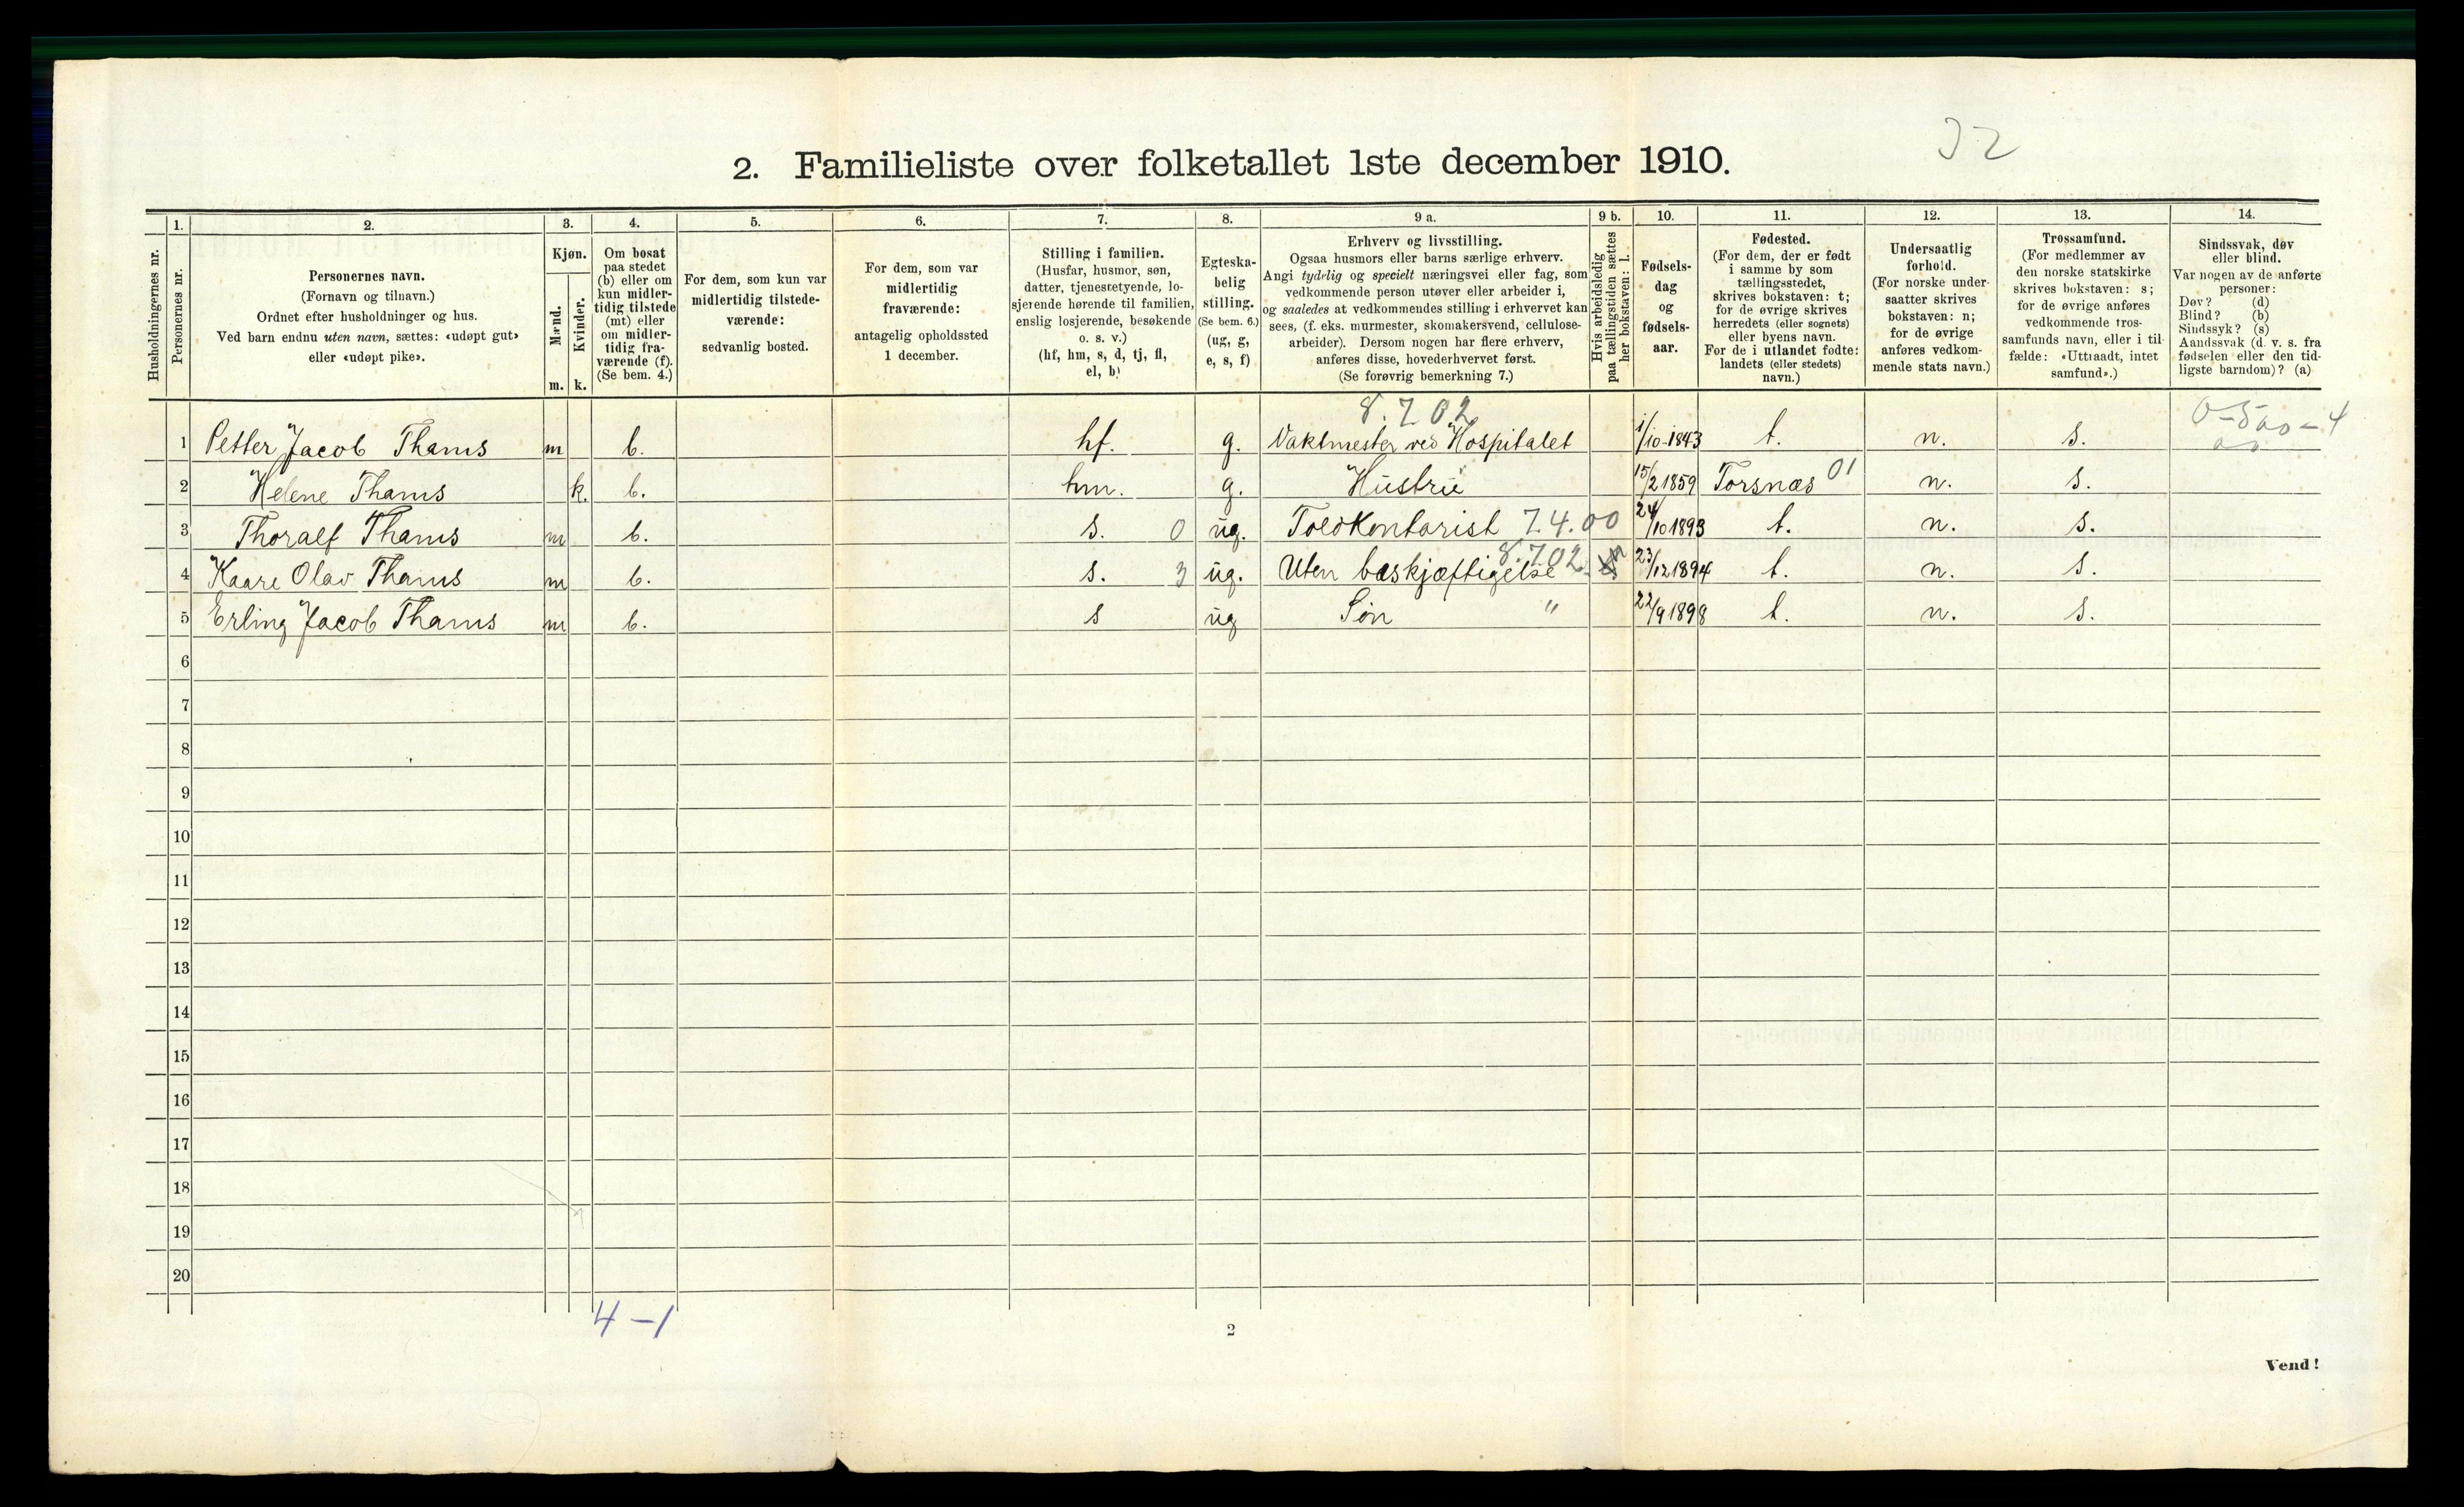 32
2. Familieliste over folketallet 1ste december 1910.
Husholdningernes nr.
1. Personernes nr.
2. Personernes navn.
(Fornavn og tilnavn.)
Ordnet efter husholdninger og hus.
Ved barn endnu uten navn, sættes: «udøpt gut»
eller «udøpt pike».
3. Kjøn.
Mænd. m.
Kvinder. k.
4. Om bosat
paa stedet
(b) eller om
kun midler-
tidig tilstede
(mt) eller
om midler-
tidig fra-
værende (f).
(Se bem. 4.)
5. For dem, som kun var
midlertidig tilstede-
værende:
sedvanlig bosted.
6. For dem, som var
midlertidig
fraværende:
antagelig opholdssted
1 december.
7. Stilling i familien.
(Husfar, husmor, søn,
datter, tjenestetyende, lo-
sjerende hørende til familien,
enslig losjerende, besøkende
o. s. v.)
(hf, hm, s, d, tj, fl,
el, b)
8. Egteska-
belig
stilling.
(Se bem. 6.)
(ug, g,
e, s, f)
9 a. Erhverv og livsstilling.
Ogsaa husmors eller barns særlige erhverv.
Angi tydelig og specielt næringsvei eller fag, som
vedkommende person utøver eller arbeider i,
og saaledes at vedkommendes stilling i erhvervet kan
sees, (f. eks. murmester, skomakersvend, cellulose-
arbeider). Dersom nogen har flere erhverv,
anføres disse, hovederhvervet først.
(Se forøvrig bemerkning 7.)
9 b. Hvis arbeidsledig
paa tællingstiden sættes
her bokstaven: l.
10. Fødsels-
dag
og
fødsels-
aar.
11. Fødested.
(For dem, der er født
i samme by som
tællingsstedet,
skrives bokstaven: t;
for de øvrige skrives
herredets (eller sognets)
eller byens navn.
For de i utlandet fødte:
landets (eller stedets)
navn.)
12. Undersaatlig
forhold.
(For norske under-
saatter skrives
bokstaven: n;
for de øvrige
anføres vedkom-
mende stats navn.)
13. Trossamfund.
(For medlemmer av
den norske statskirke
skrives bokstaven: s;
for de øvrige anføres
vedkommende tros-
samfunds navn, eller i til-
fælde: «Uttraadt, intet
samfund».)
14. Sindssvak, døv
eller blind.
Var nogen av de anførte
personer:
Døv? (d)
Blind? (b)
Sindssyk? (s)
Aandssvak (d. v. s. fra
fødselen eller den tid-
ligste barndom)? (a)
8.702
1 Petter Jacob Thams m b. hf. g. Vaktmester ved Hospitalet 1/10-1843 t. n. s.
2 Helene Thams k. b. hm. g. Hustru 15/2 1859 Torsnæs 01 n. s.
3 Thoralf Thams m b. s. 0 ug. Toldkontorist 7.4.00 24/10 1893 t. n. s.
8.702
4 Kaare Olav Thams m b. s. 3 ug. Uten beskjæftigelse 23/12 1894 t. n. s.
5 Erling Jacob Thams m b. s ug Søn " 22/9 1898 t. n. s.
6
7
8
9
10
11
12
13
14
15
16
17
18
19
20
4-1
2
Vend!